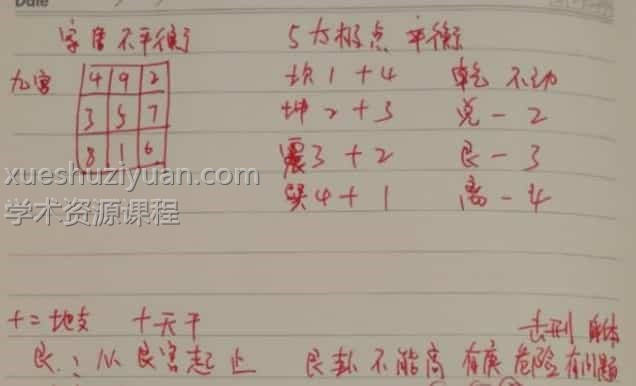 Date
宇宙不平衡 5太极点 平衡
九宫
4 9 2
3 5 7
8 1 6
坎1+4 乾 不动
坤2+3 兑-2
震3+2 艮-3
巽4+1 离-4
xueshuziyuan.com
学术资源课程
十二地支 十天干
击刑 身体
艮:从艮宫起 止 艮卦不能高 有庚 危险 有问题